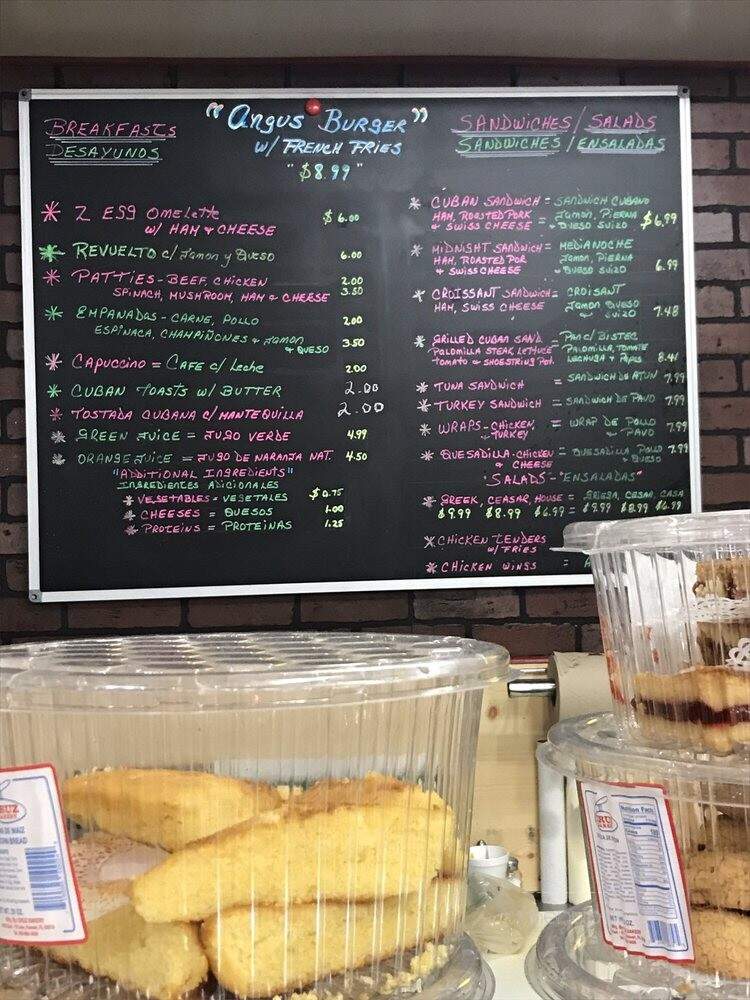 "Angus Burger"
w/ FRENCH FRIES
"$8.99"
BREAKFASTS
DESAYUNOS
* 2 Egg Omelette $6.00
w/ HAM & CHEESE
* REVUELTO c/ Jamon y Queso 6.00
* PATTIES - BEEF, CHICKEN 2.00
SPINACH, MUSHROOM, HAM & CHEESE 3.50
* EMPANADAS - CARNE, POLLO 2.00
ESPINACA, CHAMPIÑONES & Jamon 3.50
& QUESO
* Capuccino = CAFE c/ Leche 2.00
* CUBAN TOASTS w/ BUTTER 2.00
* TOSTADA CUBANA c/ MANTEQUILLA 2.00
* GREEN JUICE = JUGO VERDE 4.99
* ORANGE JUICE = JUGO DE NARANJA NAT. 4.50
"ADDITIONAL INGREDIENTS"
INGREDIENTES ADICIONALES
* VEGETABLES - VEGETALES $0.75
* CHEESES = QUESOS 1.00
* PROTEINS = PROTEINAS 1.25
SANDWICHES / SALADS
SANDWICHES / ENSALADAS
* CUBAN SANDWICH = SANDWICH CUBANO
HAM, ROASTED PORK = Jamon, PIERNA $6.99
& SWISS CHEESE = & QUESO SUIZO
* MIDNIGHT SANDWICH = MEDIANOCHE
HAM, ROASTED POR Jamon, PIERNA
& SWISS CHEESE & QUESO SUIZO 6.99
* CROISSANT SANDWICH = CROISANT
HAM, SWISS CHEESE Jamon QUESO
& SUIZO 7.48
* GRILLED CUBAN SAND. = PAN C/ BISTEC
PALOMILLA STEAK, LETTUCE PALOMILLA, TOMATE
TOMATO & SHOESTRING POT. LECHUGA & PAPAS 8.41
* TUNA SANDWICH = SANDWICH DE ATUN 7.99
* TURKEY SANDWICH = SANDWICH DE PAVO 7.99
* WRAPS - CHICKEN, = WRAP DE POLLO
TURKEY & PAVO 7.99
* QUESADILLA - CHICKEN = QUESADILLA POLLO 7.99
& CHEESE & QUESO
"SALADS - "ENSALADAS"
* GREEK, CEASAR, HOUSE = GRIEGA, CESAR, CASA
$9.99 $8.99 $6.99 = $9.99 $8.99 $6.99
* CHICKEN TENDERS
w/ FRIES
* CHICKEN WINGS =
Nutrition Facts